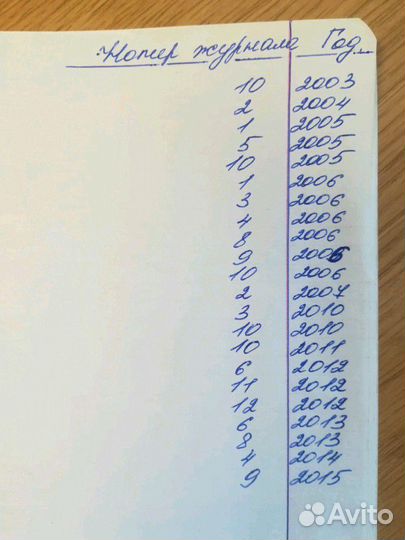 Номер журнала Год
10 2003
2 2004
1 2005
5 2005
10 2005
1 2006
3 2006
4 2006
8 2006
9 2006
10 2006
2 2007
3 2010
10 2010
10 2011
6 2012
11 2012
12 2012
6 2013
8 2013
4 2014
9 2015
Avito